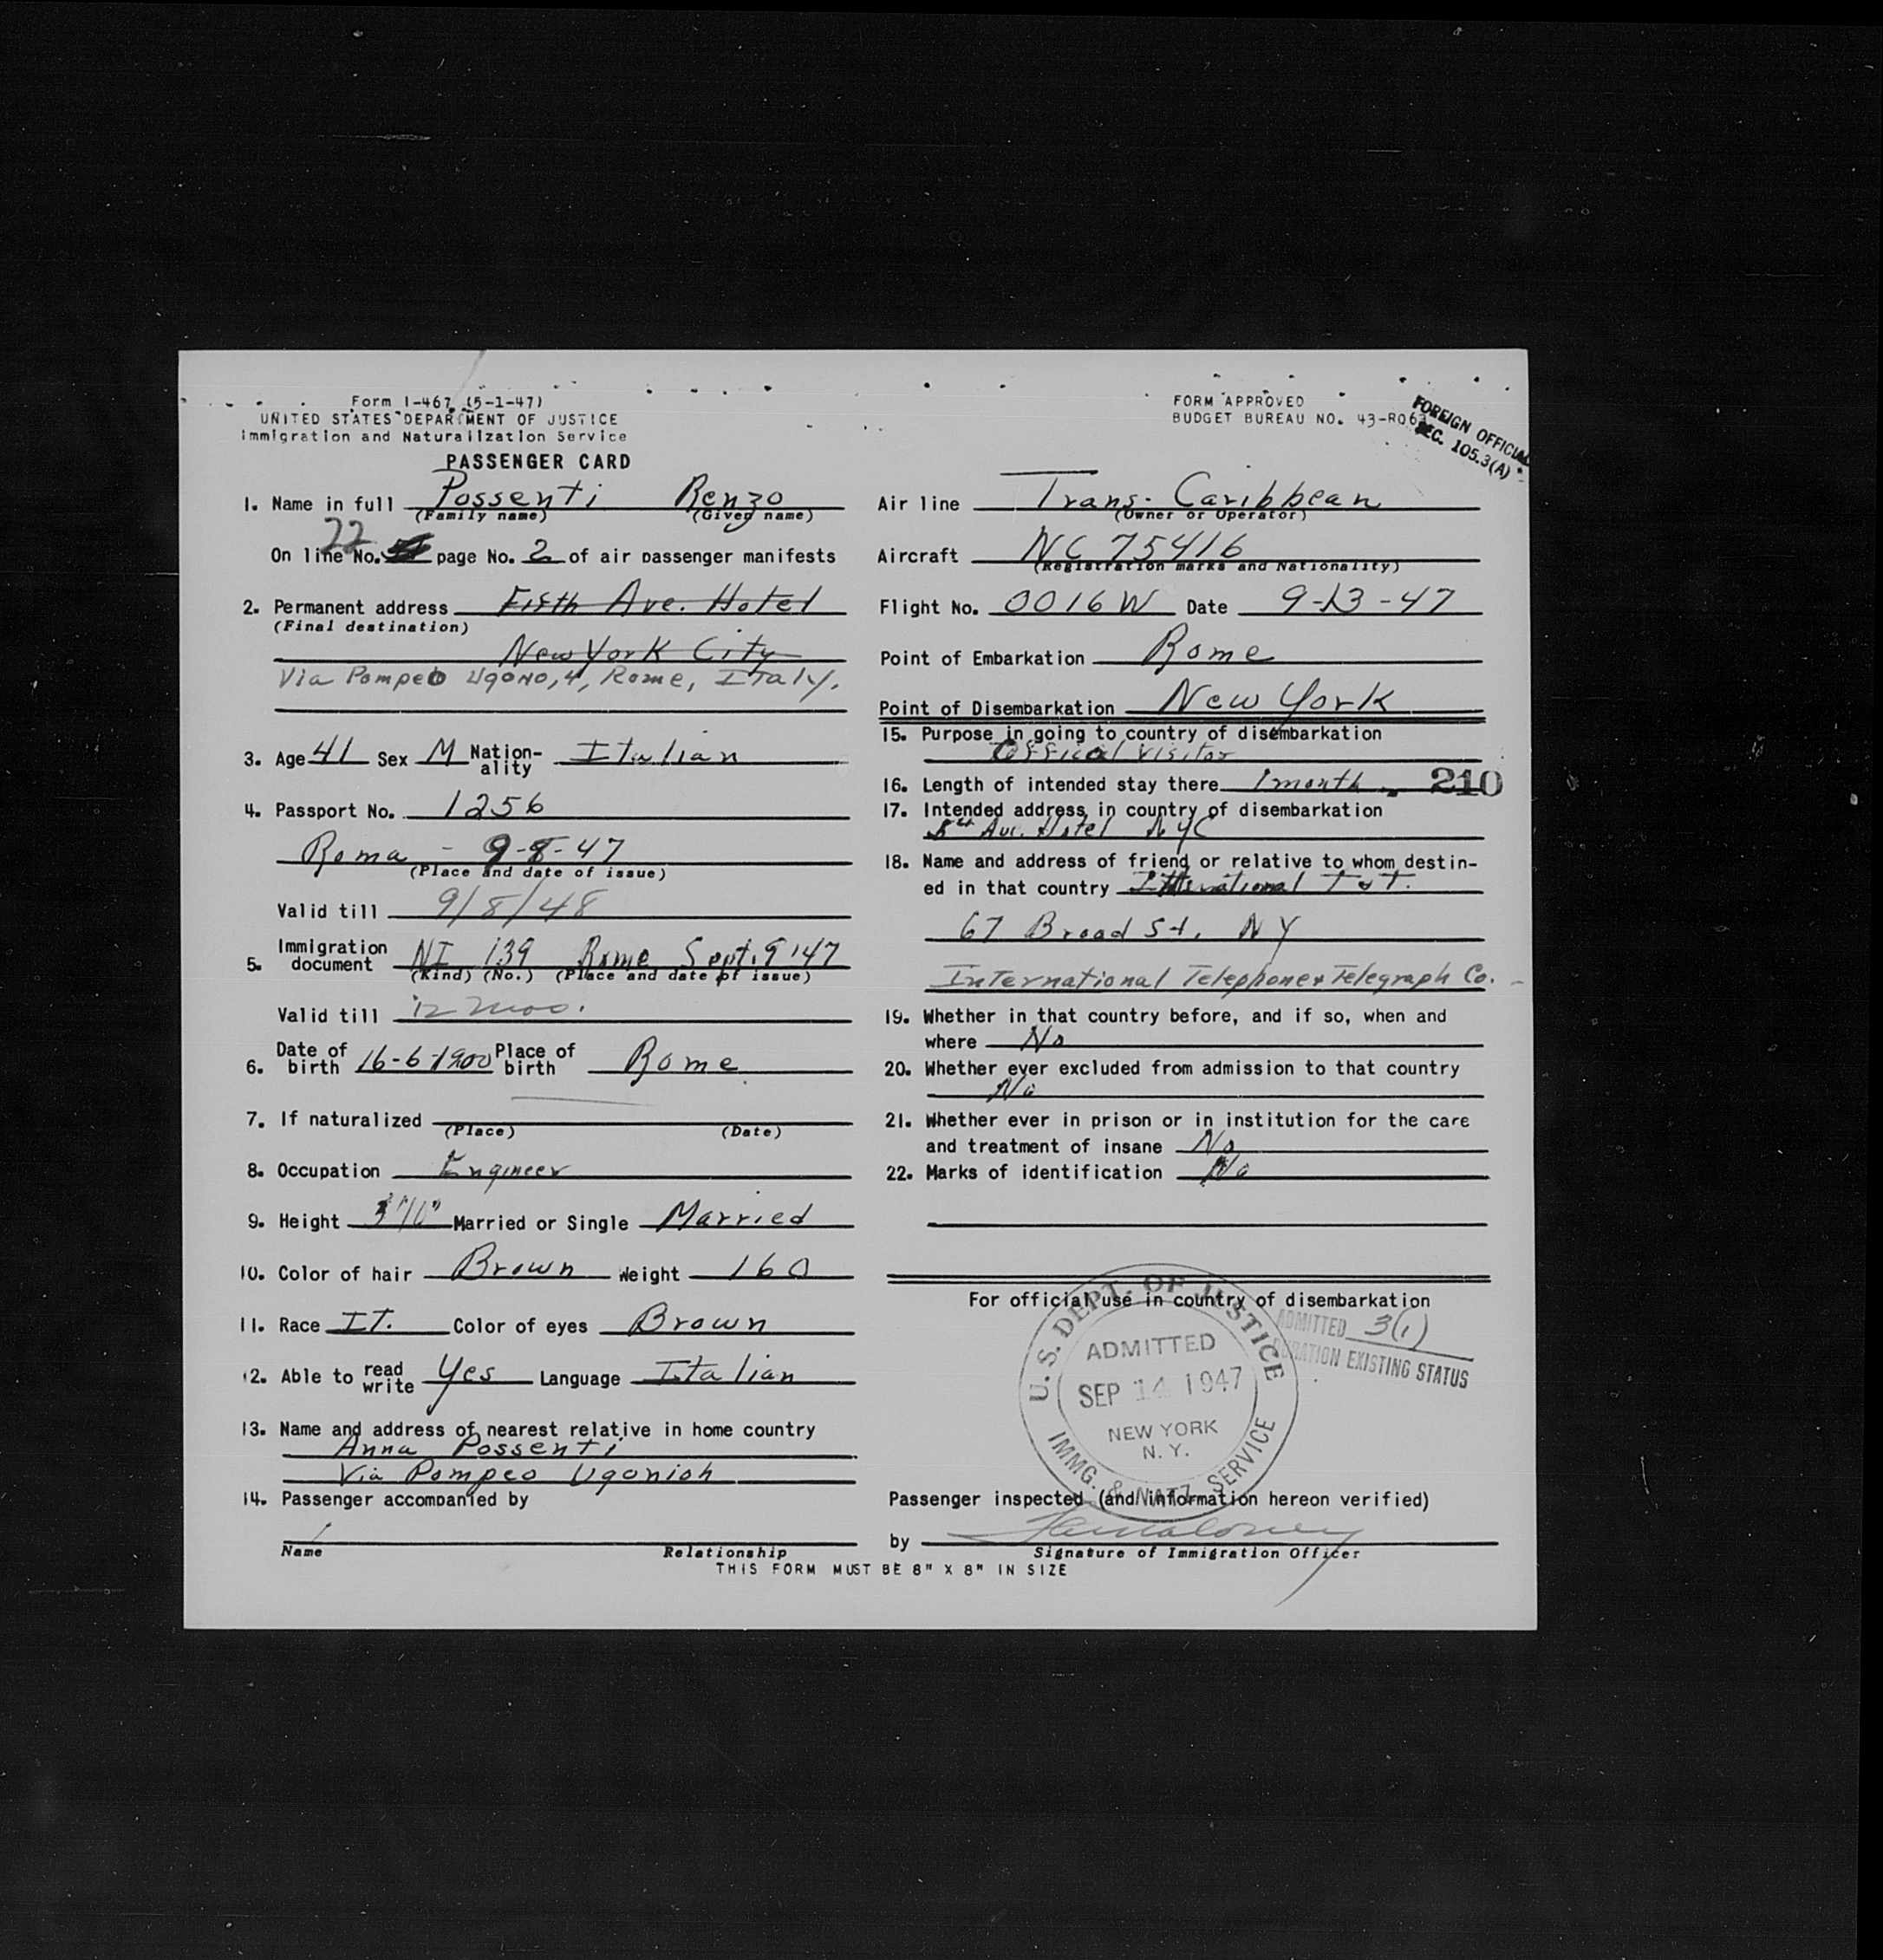 Form I-467 (5-1-47)
UNITED STATES DEPARTMENT OF JUSTICE
Immigration and Naturalization Service
PASSENGER CARD
1. Name in full Possenti Renzo
(Family name) (Given name)
22
On line No. page No. 2 of air passenger manifests
2. Permanent address Fifth Ave. Hotel
(Final destination)
New York City
Via Pompeo Ugono, 4, Rome, Italy.
3. Age 41 Sex M Nation-ality Italian
4. Passport No. 1256
Roma - 9-8-47
(Place and date of issue)
Valid till 9/8/48
5. Immigration document NI 139 Rome Sept. 9 '47
(Kind) (No.) (Place and date of issue)
Valid till 12 mos.
6. Date of birth 16-6-1900 Place of birth Rome
7. If naturalized
(Place) (Date)
8. Occupation Engineer
9. Height Married or Single Married
10. Color of hair Brown Weight 160
11. Race IT. Color of eyes Brown
12. Able to read write Yes Language Italian
13. Name and address of nearest relative in home country
Anna Possenti
Via Pompeo
14. Passenger accompanied by
Name Relationship
FORM APPROVED
BUDGET BUREAU NO. 43-R063
FOREIGN OFFICIAL
SEC. 105.3(A)
Air line Trans-Caribbean
(Owner or Operator)
Aircraft NC 75416
(Registration marks and Nationality)
Flight No. 0016W Date 9-13-47
Point of Embarkation Rome
Point of Disembarkation New York
15. Purpose in going to country of disembarkation
Offical Visitor
16. Length of intended stay there 1 month 210
17. Intended address in country of disembarkation
5th Ave. Hotel NYC
18. Name and address of friend or relative to whom destin-
ed in that country International T & T.
67 Broad St. NY
International Telephone & Telegraph Co.
19. Whether in that country before, and if so, when and
where No
20. Whether ever excluded from admission to that country
No
21. Whether ever in prison or in institution for the care
and treatment of insane No
22. Marks of identification No
For official use in country of disembarkation
U.S. DEPT. OF JUSTICE
ADMITTED
SEP 14 1947
NEW YORK
N. Y.
IMMG. & NATZ. SERVICE
ADMITTED 3(1)
DURATION EXISTING STATUS
Passenger inspected (and information hereon verified)
by
Signature of Immigration Officer
THIS FORM MUST BE 8" X 8" IN SIZE